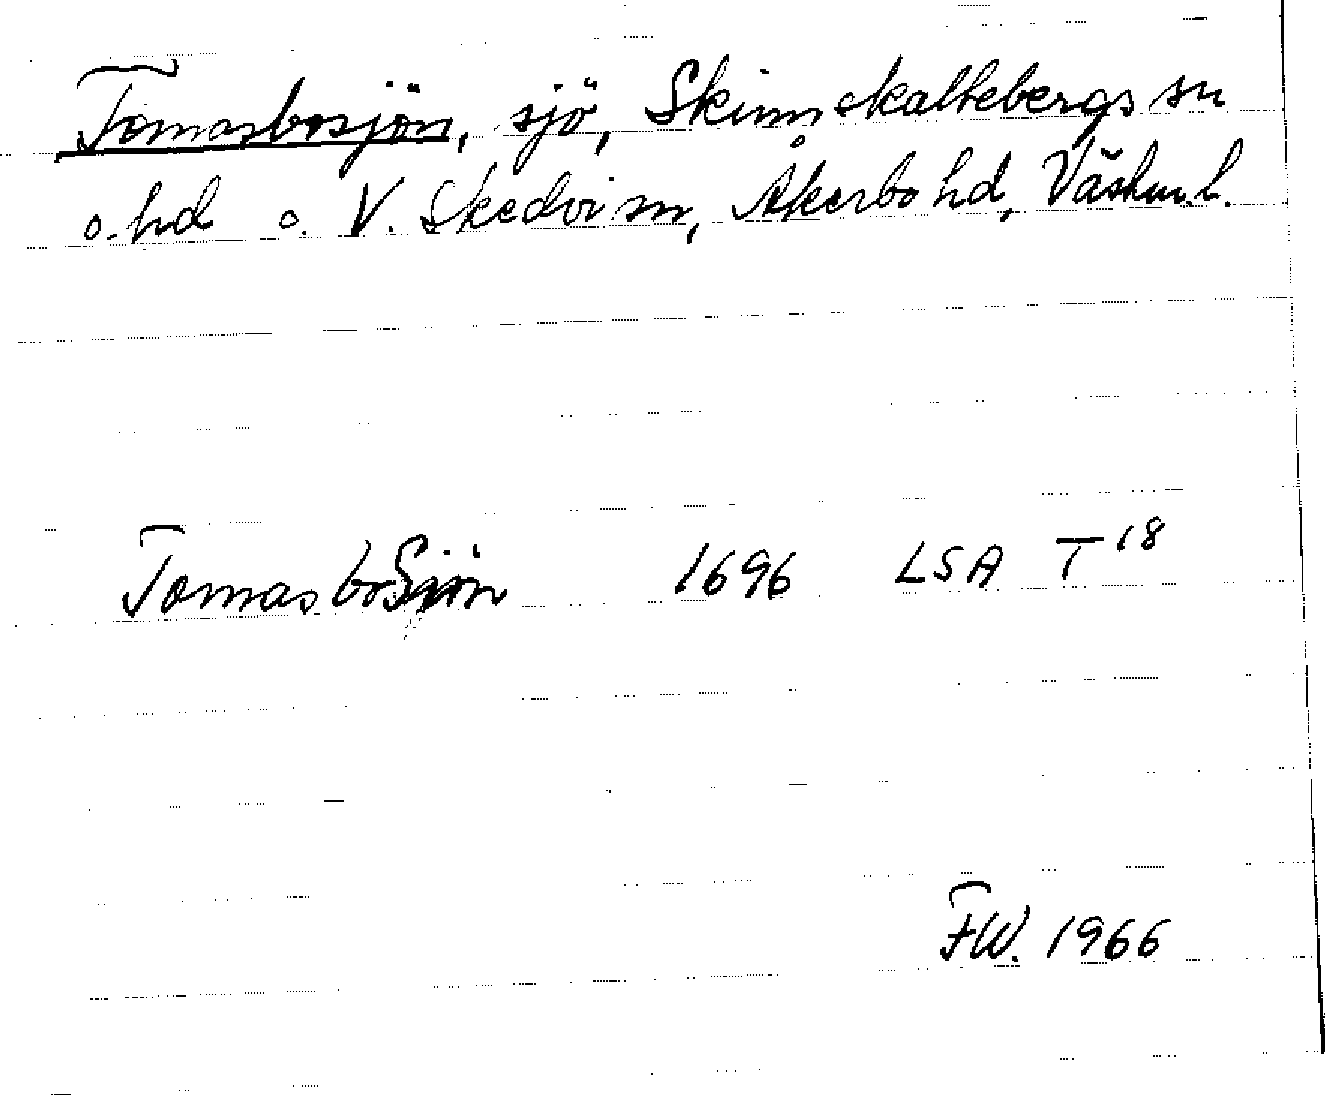 Tomasbosjön, sjö, Skinnskattebergs sn
o. hd o. V. Skedvi sn, Åkerbo hd, Västm. l.
TomasboSjön 1696 LSA T 18
F.W. 1966